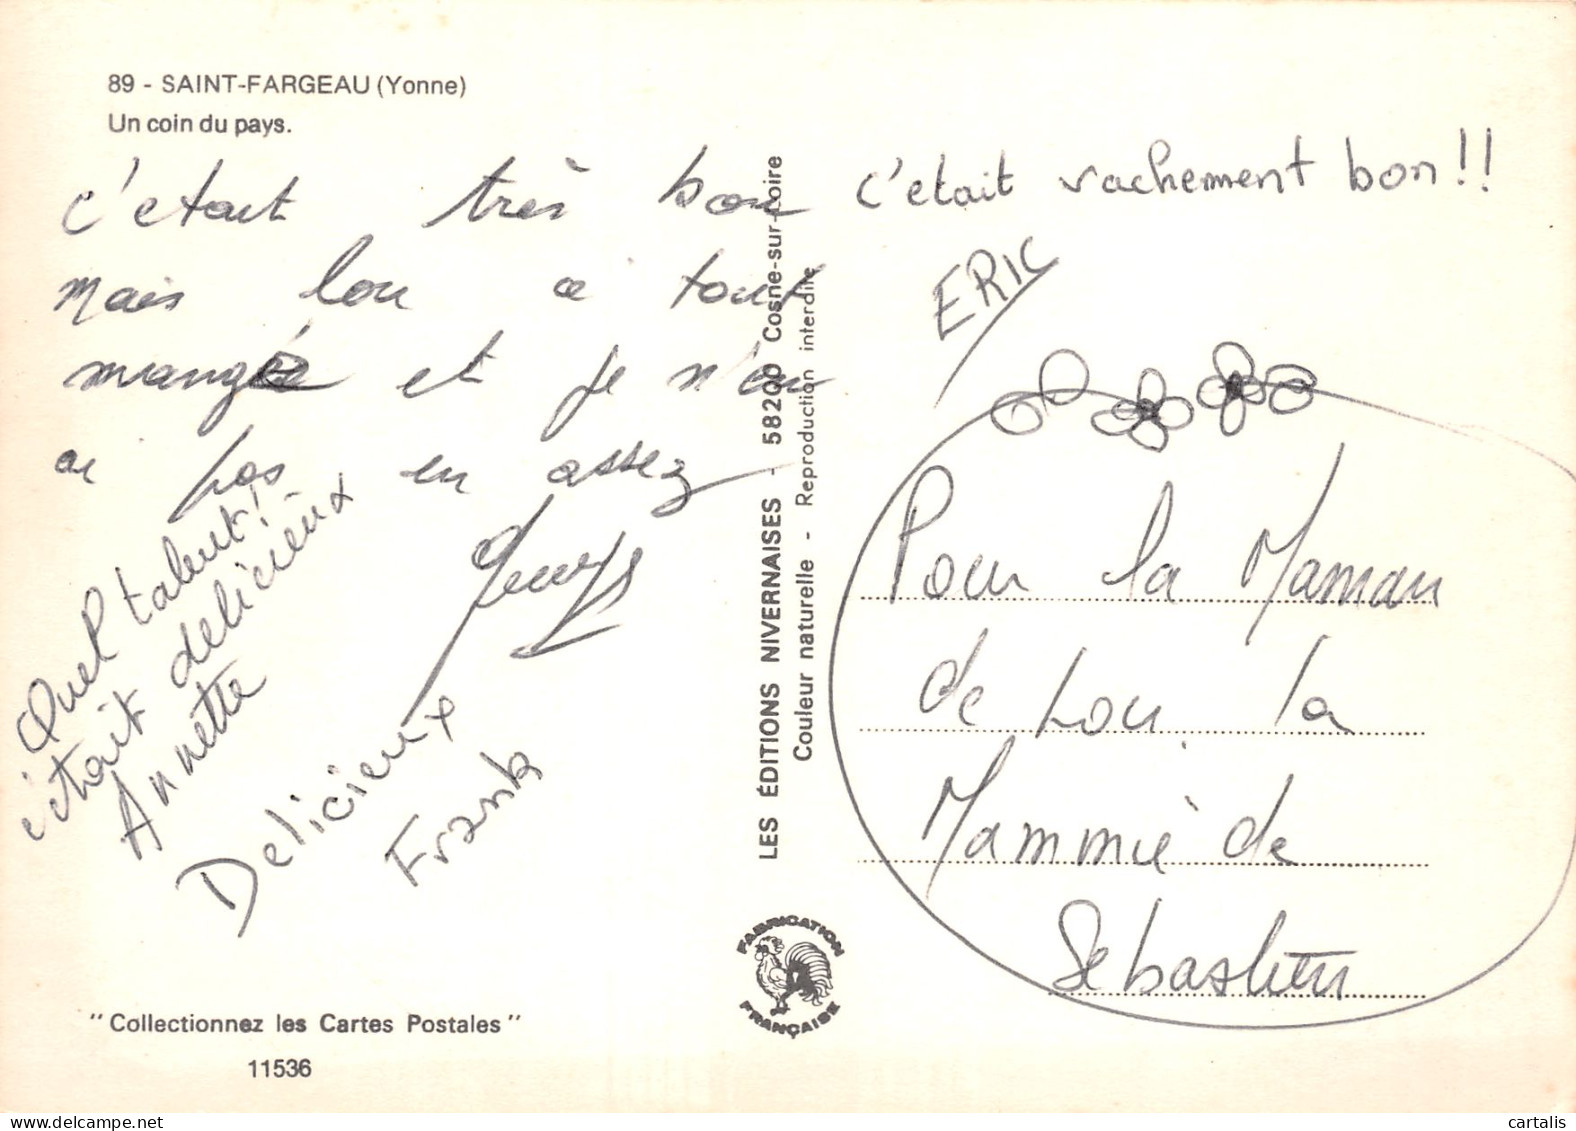 89 - SAINT-FARGEAU (Yonne)
Un coin du pays.
c'etait très bon
mais lou a tout
mangé et je n'en
ai pas en assez
Quel talent!
c'était delicieux
Annette
Delicieux
Frank
"Collectionnez les Cartes Postales"
11536
LES ÉDITIONS NIVERNAISES - 58200 Cosne-sur-Loire
Couleur naturelle - Reproduction interdite
FABRICATION
FRANÇAISE
c'etait vachement bon!!
ERIC
Pour la Maman
de Lou, la
Mammie de
Sebastien
cartalis
delcampe.net